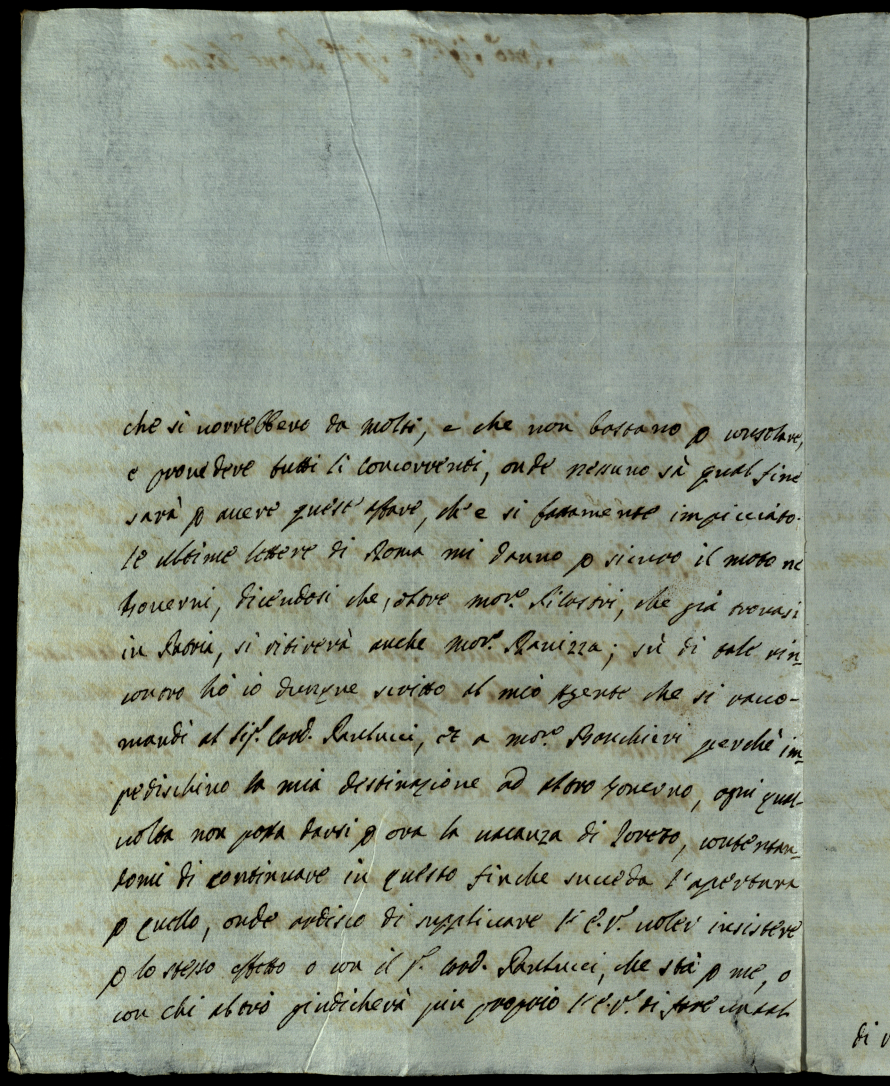 che si vorrebbero da molti, e che non bastano p consolare,
e provedere tutti li concorrenti, onde nessuno sà qual fine
sarà p avere quest' affare, ch' e si fattamente impicciato.
le ultime lettere di Roma mi danno p sicuro il moto ne
Governi, dicendosi che, oltre mons.r Filastri, che già trovasi
in Patria, si ritirerà anche mons.r Ravizza; sù di tale rin=
contro hò io dunque scritto al mio Agente che si racco-
mandi al Sig.r Card. Paulucci, et a mons.r Banchieri perchè im=
pedischino la mia destinazione ad altro Governo, ogni qual-
volta non possa darsi p ora la vacanza di Loreto, contentan=
domi di continuare in questo finche succeda l'apertura
p quello, onde ardisco di supplicare l' E.V. voler insistere
p lo stesso effetto o con il S.r Card. Paulucci, che stà p me, o
con chi altro giudicherà più proprio l' E.V. di fare un tal
di